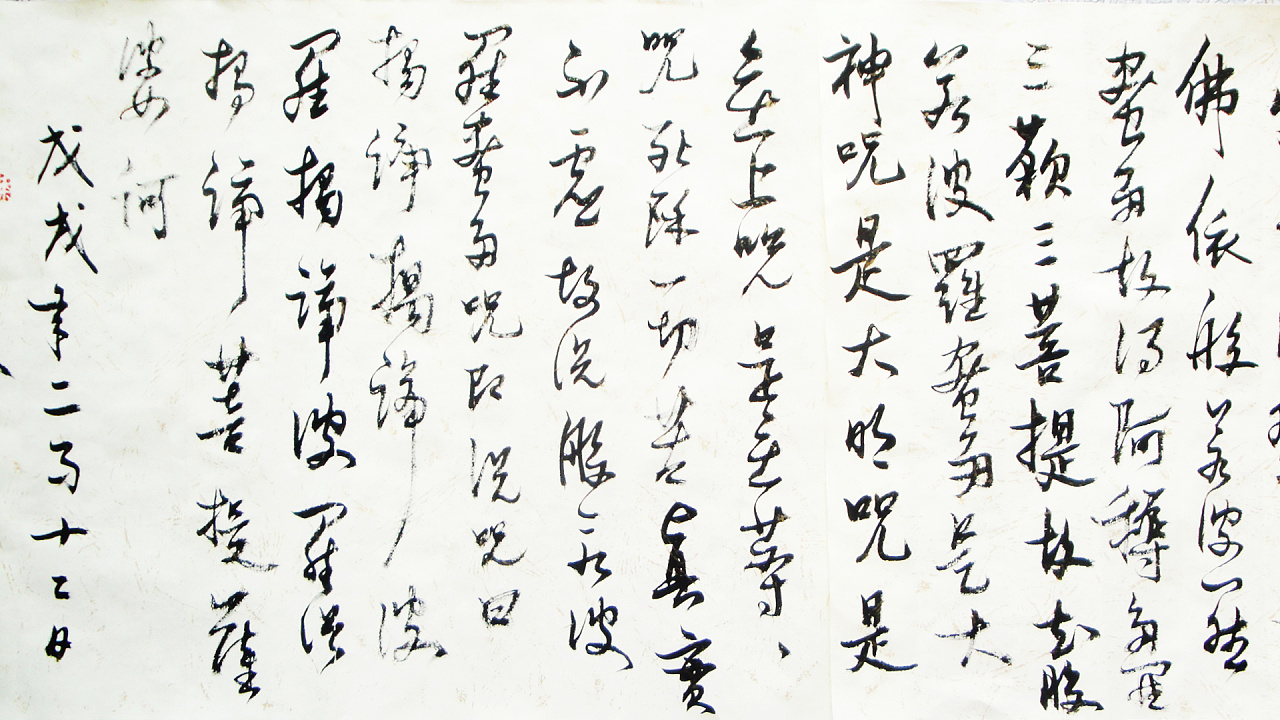 佛依般若波羅
蜜多故得阿耨多羅
三藐三菩提故知般
若波羅蜜多是大
神咒是大明咒是
無上咒是無等、
咒能除一切苦真實
不虛故說般若波
羅蜜多咒即說咒曰
揭諦揭諦波
羅揭諦波羅僧
揭諦菩提薩
婆訶
戊戌年二月十二日